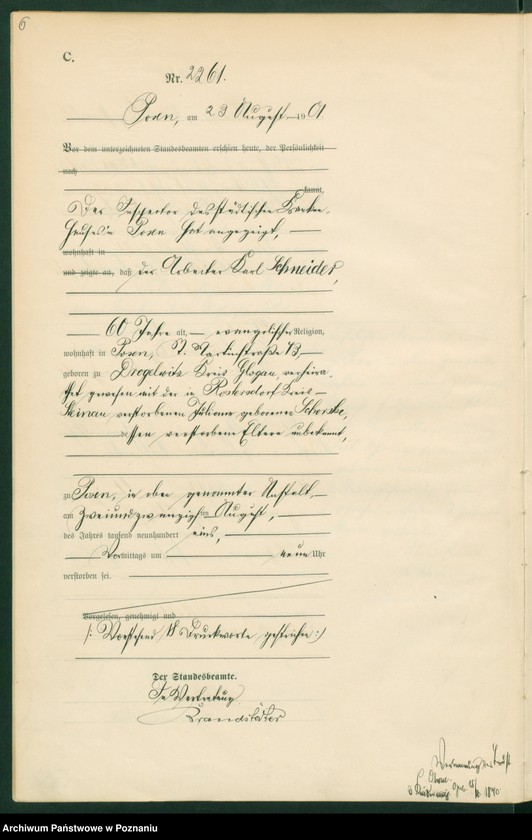 6
C.
Nr. 2261.
Posen, am 23 August 1901.
Vor dem unterzeichneten Standesbeamten erschien heute, der Persönlichkeit
nach
kannt,
Der Inspector des städtischen Kranken-
hauses in Posen hat angezeigt,
wohnhaft in
und zeigte an, daß der Arbeiter Karl Schneider,
60 Jahre alt, evangelischer Religion,
wohnhaft in Posen, St. Martinstraße 73,
geboren zu Kreis Glogau, verheira-
thet gewesen mit der in Kreis
Steinau verstorbenen Juliane geborenen
dessen verstorbene Eltern unbekannt,
zu Posen, in oben genannter Anstalt,
am zweiundzwanzigsten August,
des Jahres tausend neunhundert eins,
Vormittags um neun Uhr
verstorben sei.
Vorgelesen, genehmigt und
/: Vorstehend Druckworte gestrichen :/
Der Standesbeamte.
In Vertretung
Brandstädter
1840
Archiwum Państwowe w Poznaniu